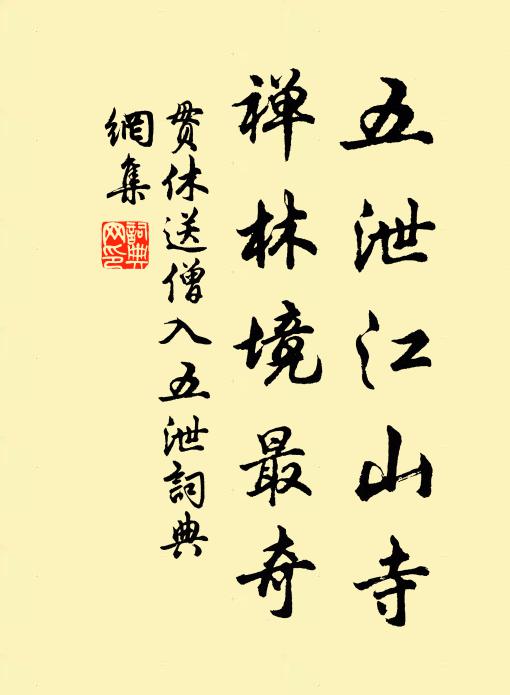 五泄江山寺
禅林境最奇
贯休送僧入五泄詞典
網集
詞典網印